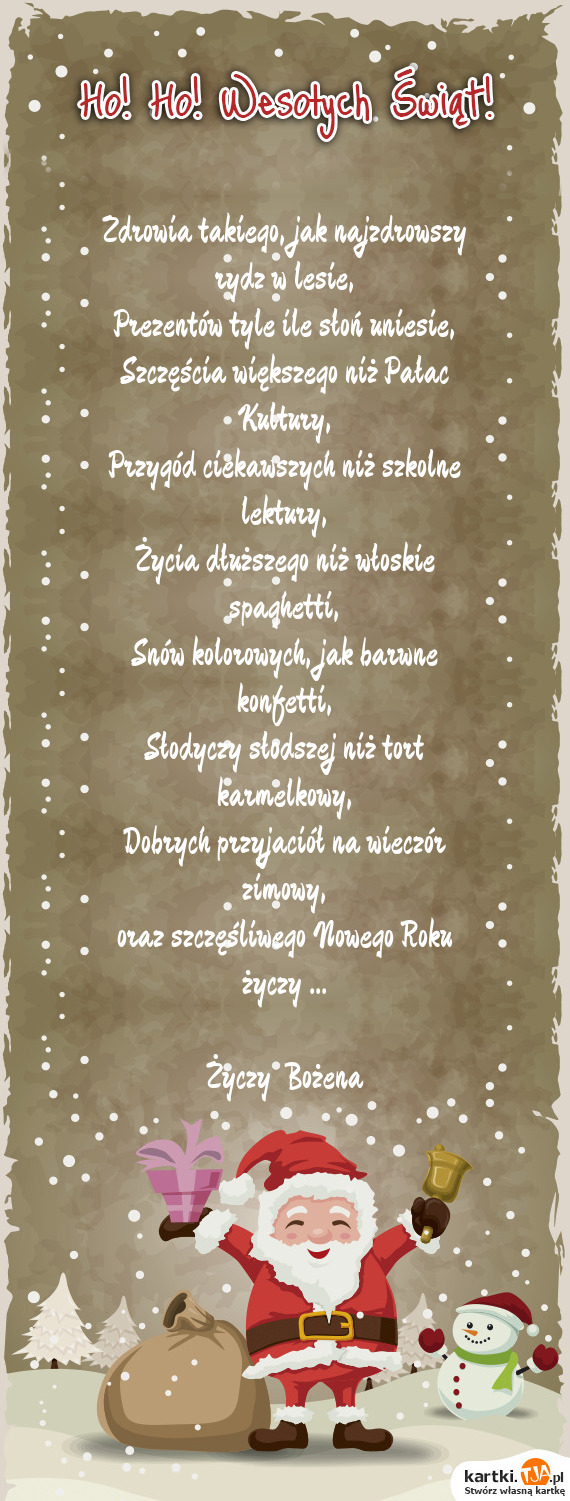 Ho! Ho! Wesołych Świąt!
Zdrowia takiego, jak najzdrowszy
rydz w lesie,
Prezentów tyle ile słoń uniesie,
Szczęścia większego niż Pałac
Kultury,
Przygód ciekawszych niż szkolne
lektury,
Życia dłuższego niż włoskie
spaghetti,
Snów kolorowych, jak barwne
konfetti,
Słodyczy słodszej niż tort
karmelkowy,
Dobrych przyjaciół na wieczór
zimowy,
oraz szczęśliwego Nowego Roku
życzy ...
Życzy Bożena
kartki.TJA.pl
Stwórz własną kartkę